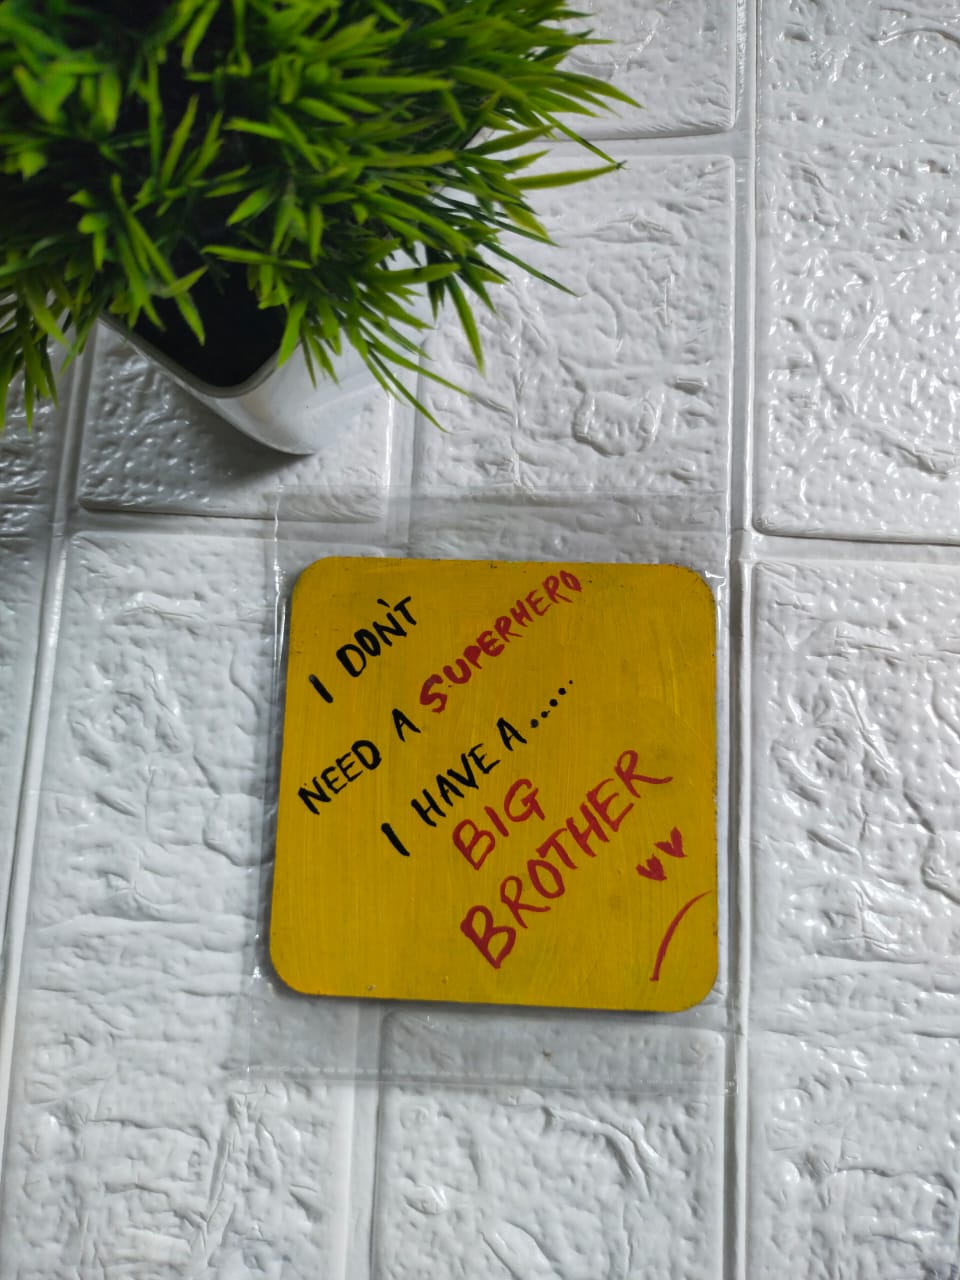 I DON'T
NEED A SUPERHERO
I HAVE A.....
BIG
BROTHER